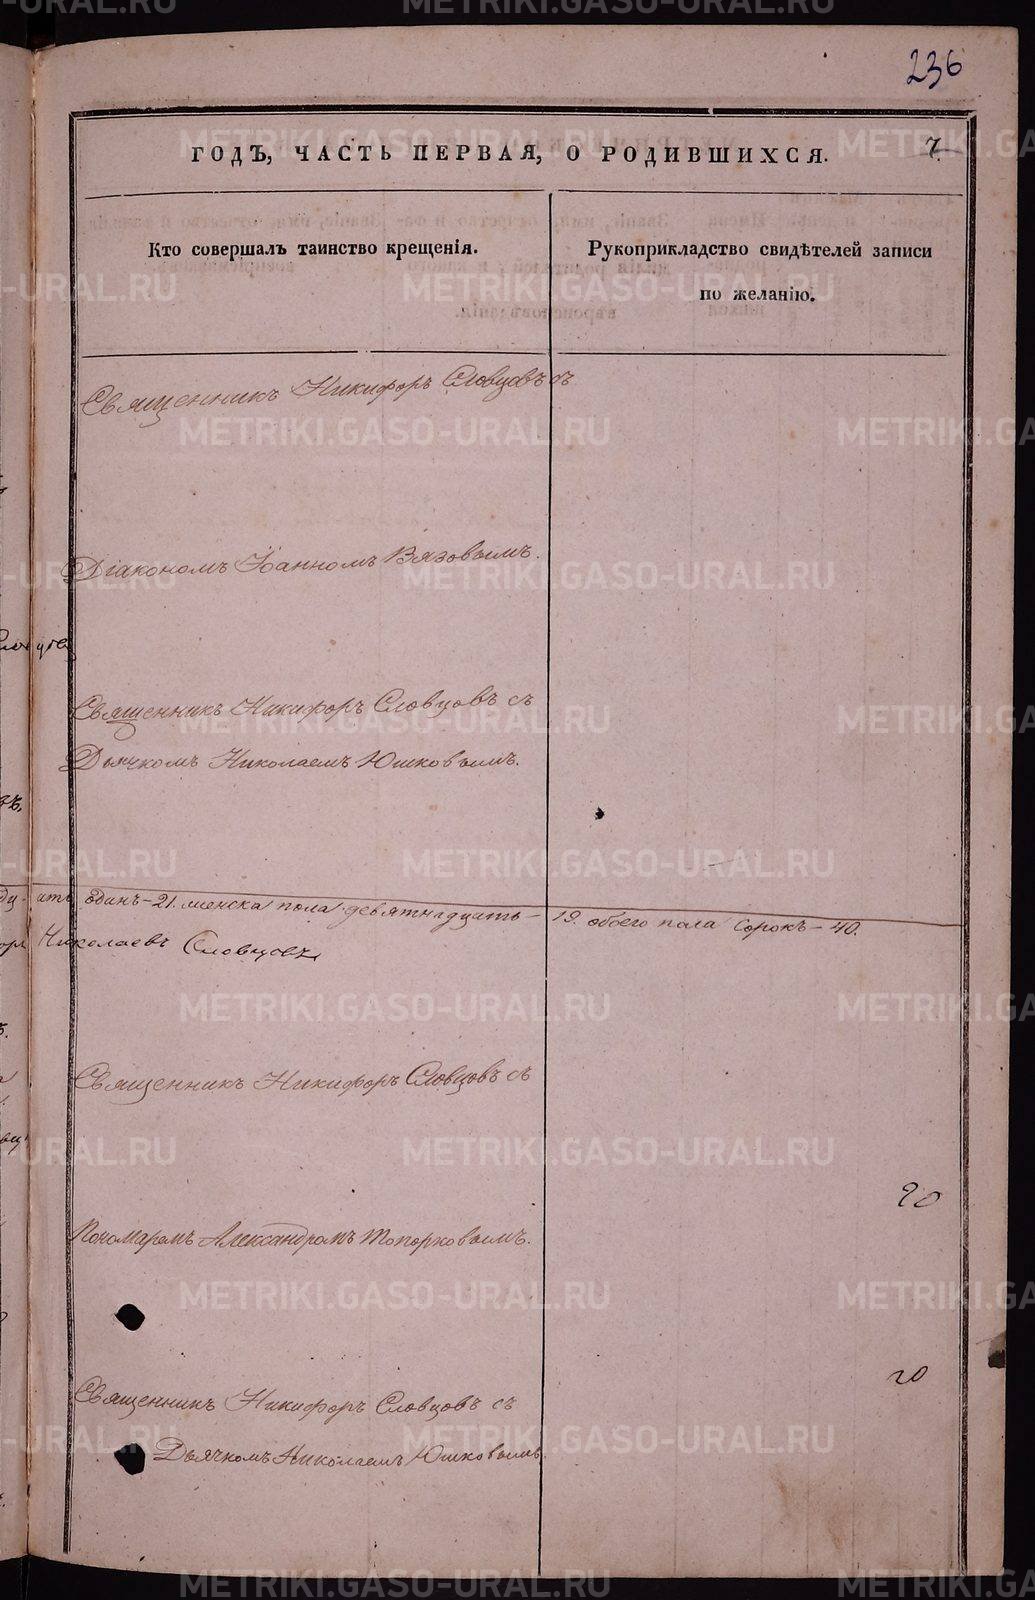 236
ГОДЪ, ЧАСТЬ ПЕРВАЯ, О РОДИВШИХСЯ.
7
Кто совершалъ таинство крещенія.
Рукоприкладство свидѣтелей записи
по желанію.
Священникъ Никифоръ Словцовъ съ
Діакономъ Іоанномъ Вязовымъ.
Священникъ Никифоръ Словцовъ съ
Дьячкомъ Николаемъ Юшковымъ.
одинъ - 21. женска пола девятнадцать - 19. обоего пола сорокъ - 40.
Николаевъ Словцовъ
Священникъ Никифоръ Словцовъ съ
Пономаремъ Александромъ Топорковымъ.
20
Священникъ Никифоръ Словцовъ съ
20
Дьячкомъ Николаемъ Юшковымъ.
METRIKI.GASO-URAL.RU